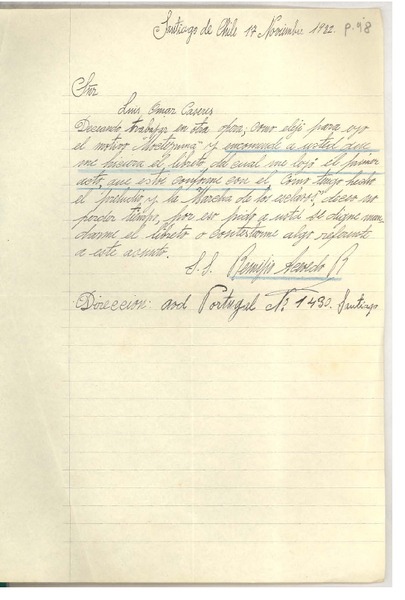 Santiago de Chile 17 Noviembre 1922. p. 98
Snr
Luis Omar Caseres
Deseando trabajar en otra opera; como elijí para ello
el motivo "Moctezuma" y encomendé a usted que
me hiciera el libreto del cual me leyó el primer
acto, que estoi conforme con el. Cómo tengo hecho
el preludio y la "Marcha de los esclavos", deseo no
perder tiempo, por eso pido a usted se digne man-
darme el libreto o contestarme algo referente
a este asunto.
S. S. Remijio Acevedo R
Direccion: avd Portugal No. 1430. Santiago